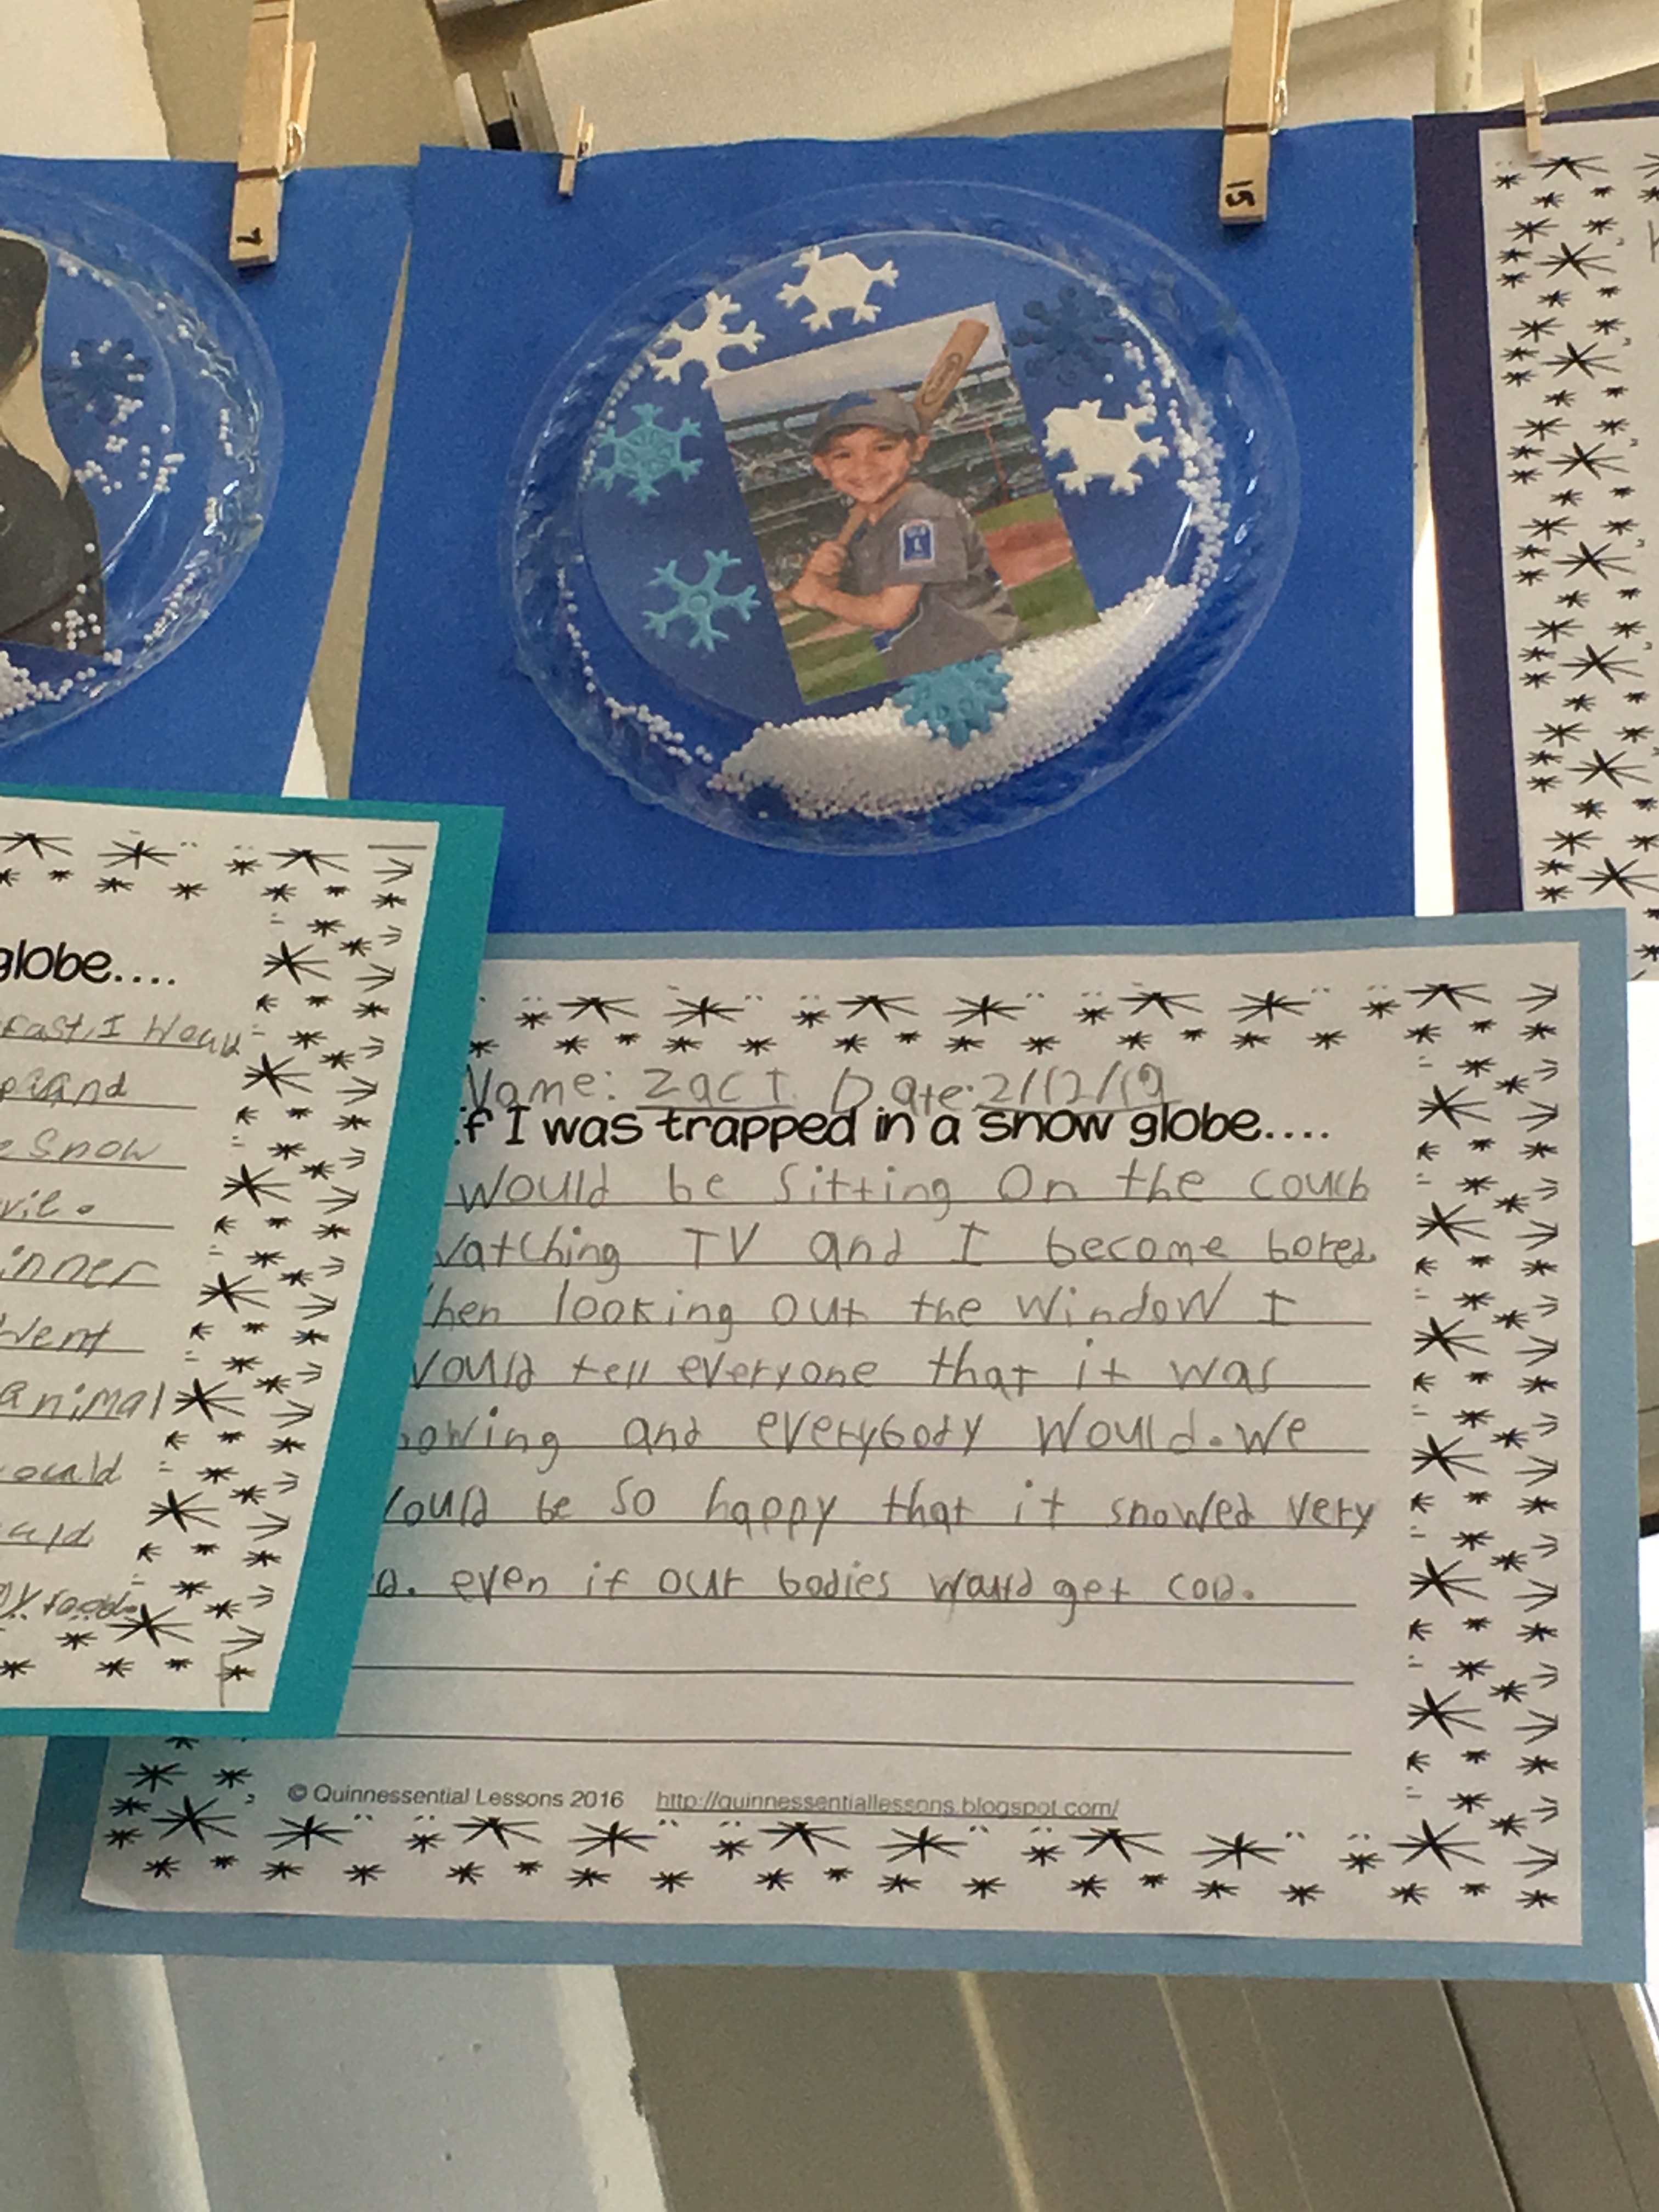 7
15
globe....
I would
and
snow
inner
went
animal
ould
food.
Name: Zac I. Date: 2/12/19
If I was trapped in a snow globe....
would be sitting on the couch
watching TV and I become bored.
hen looking out the window I
would tell everyone that it was
nowing and everybody would. we
would be so happy that it snowed very
even if our bodies would get cod.
© Quinnessential Lessons 2016 http://quinnessentiallessons.blogspot.com/